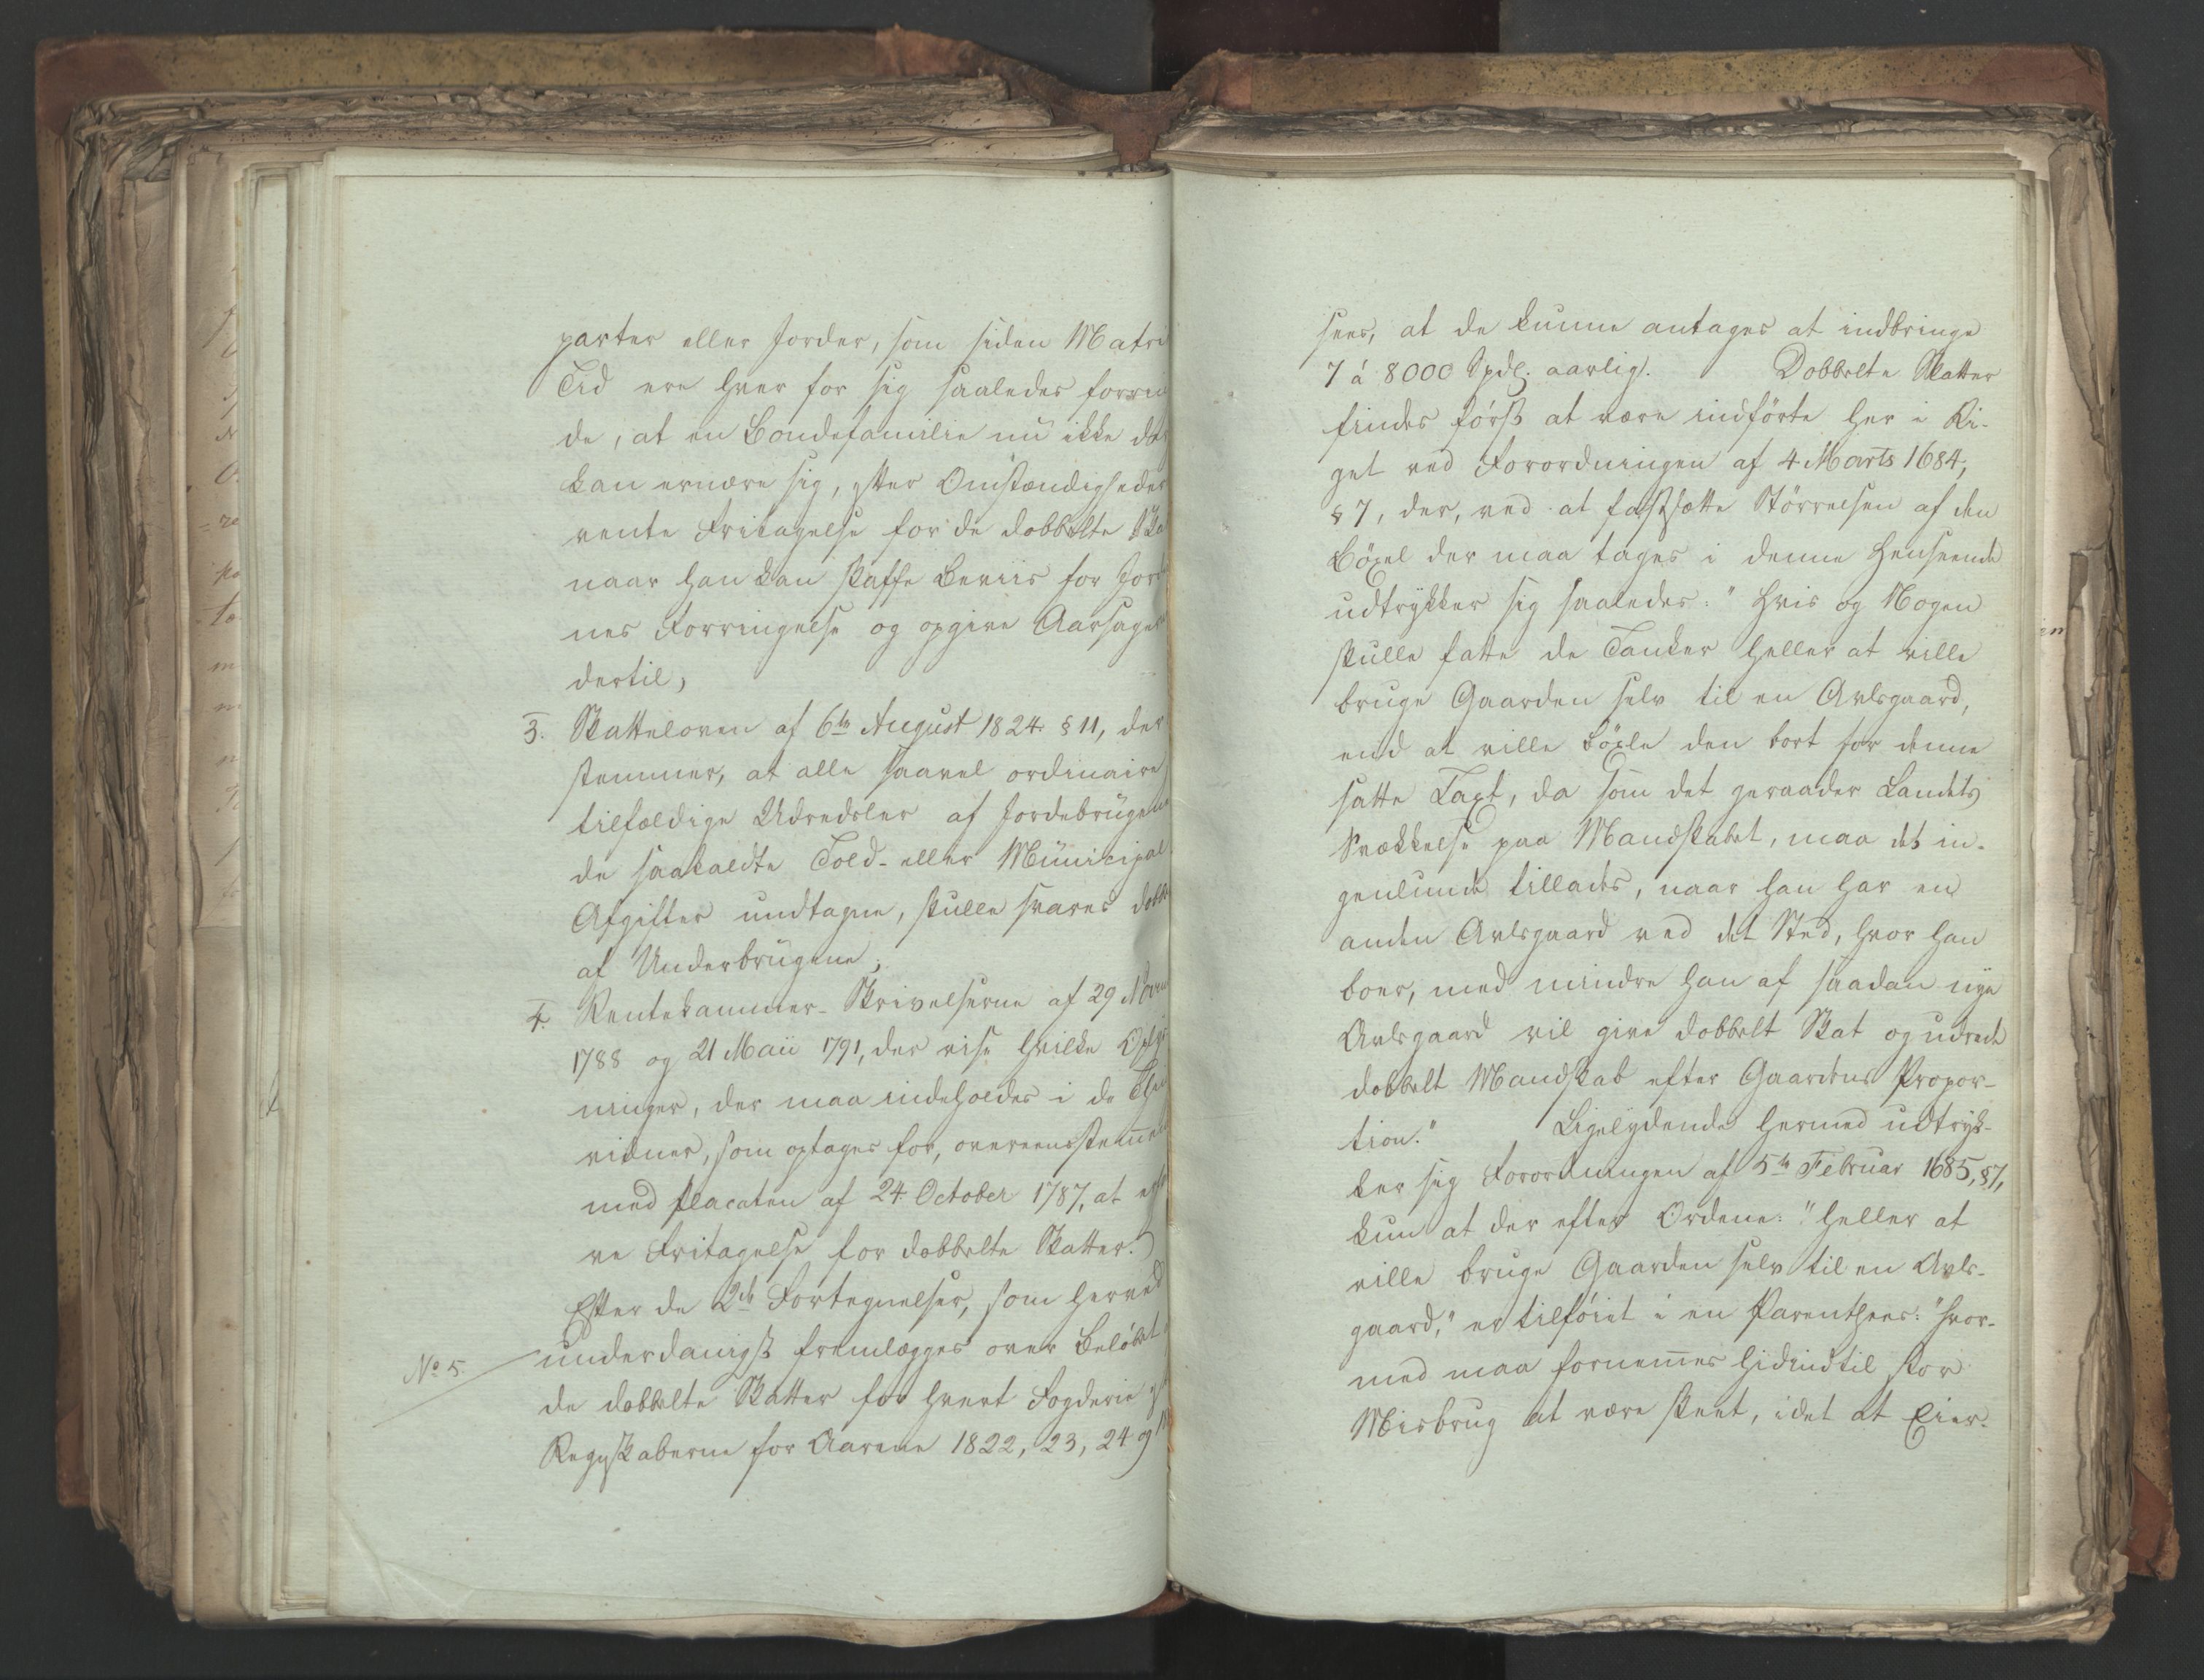 parter eller Jorder, som siden Matri
Tid ere hver for sig saaledes forrin
de, at en Bondefamilie nu ikke der
kan ernære sig, efter Omstændigheder
vente Fritagelse for de dobbelte Ska
naar han kan skaffe Beviis for Jor
nes Forringelse og opgive Aarsager
dertil,
3. Skatteloven af 6te August 1824 § 11, der
stemmer, at alle saavel ordinaire
tilfældige Udredsler af Jordebrugene
de saakaldte Told- eller Municipal
Afgifter undtagne, skulle svares dobb
af Underbrugene;
4. Rentekammer-Skrivelserne af 29 Nov
1788 og 21 Maii 1791, der vise hvilke Oply
ninger, der maa indeholdes i de Thin
vidner, som optages for, overeensstem̄en
med Placaten af 24 October 1787, at
ve Fritagelse for dobbelte Skatter.
Efter de 2de Fortegnelser, som herved
No 5. underdanigst fremlægges over Beløbet
de dobbelte Skatter for hvert Fogderie
Regnskaberne for Aarene 1822, 23, 24 og
sees, at de kunne antages at indbringe
7 á 8000 Spdl. aarlig. Dobbelte Skatter
findes først at være indførte her i Ri-
get ved Forordningen af 4 Marts 1684,
§ 7, der, ved at fastsætte Størrelsen af den
Bøxel der maa tages i denne Henseende
udtrykker sig saaledes: "Hvis og Nogen
skulle fatte de Tanker heller at ville
bruge Gaarden selv til en Avlsgaard,
end at ville bøxle den bort for denne
satte Taxt, da som det geraader Landets
Svækkelse paa Mandskabet, maa det in-
genlunde tillades, naar han har en
anden Avlsgaard ved det Sted, hvor han
boer, med mindre han af saadan nye
Avlsgaard vil give dobbelt Skat og udrede
dobbelt Mandskab efter Gaardens Propor-
tion." Ligelydende hermed udtryk-
ker sig Forordningen af 5te Februar 1685, § 7,
kun at der efter Ordene: "heller at
ville bruge Gaarden selv til en Avls-
gaard," er tilføiet i en Parenthees: "hvor-
med maa fornem̄es hidindtil stor
Misbrug at være skeet, idet at Eier-